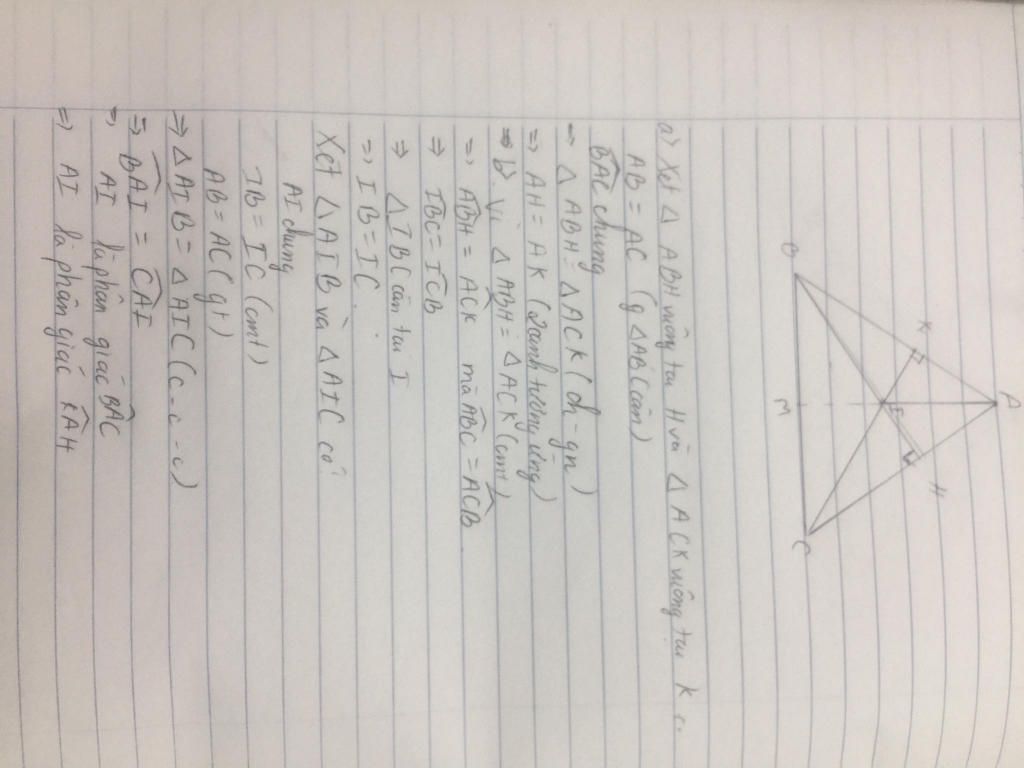 A
K
H
I
B
M
C
a) Xét Δ ABH vuông tại H và Δ ACK vuông tại K c.
AB = AC (g ΔABC cân)
BAC chung
=> Δ ABH = Δ ACK (ch - gn)
=> AH = AK (2 cạnh tương ứng)
b). Vì Δ ABH = Δ ACK (cmt)
=> ABH = ACK mà ABC = ACB
=> IBC = ICB
=> Δ IBC cân tại I
=> IB = IC.
Xét Δ AIB và Δ AIC có
AI chung
IB = IC (cmt)
AB = AC (gt)
=> Δ AIB = Δ AIC (c - c - c)
=> BAI = CAI
=> AI là phân giác BAC
=> AI là phân giác KAH